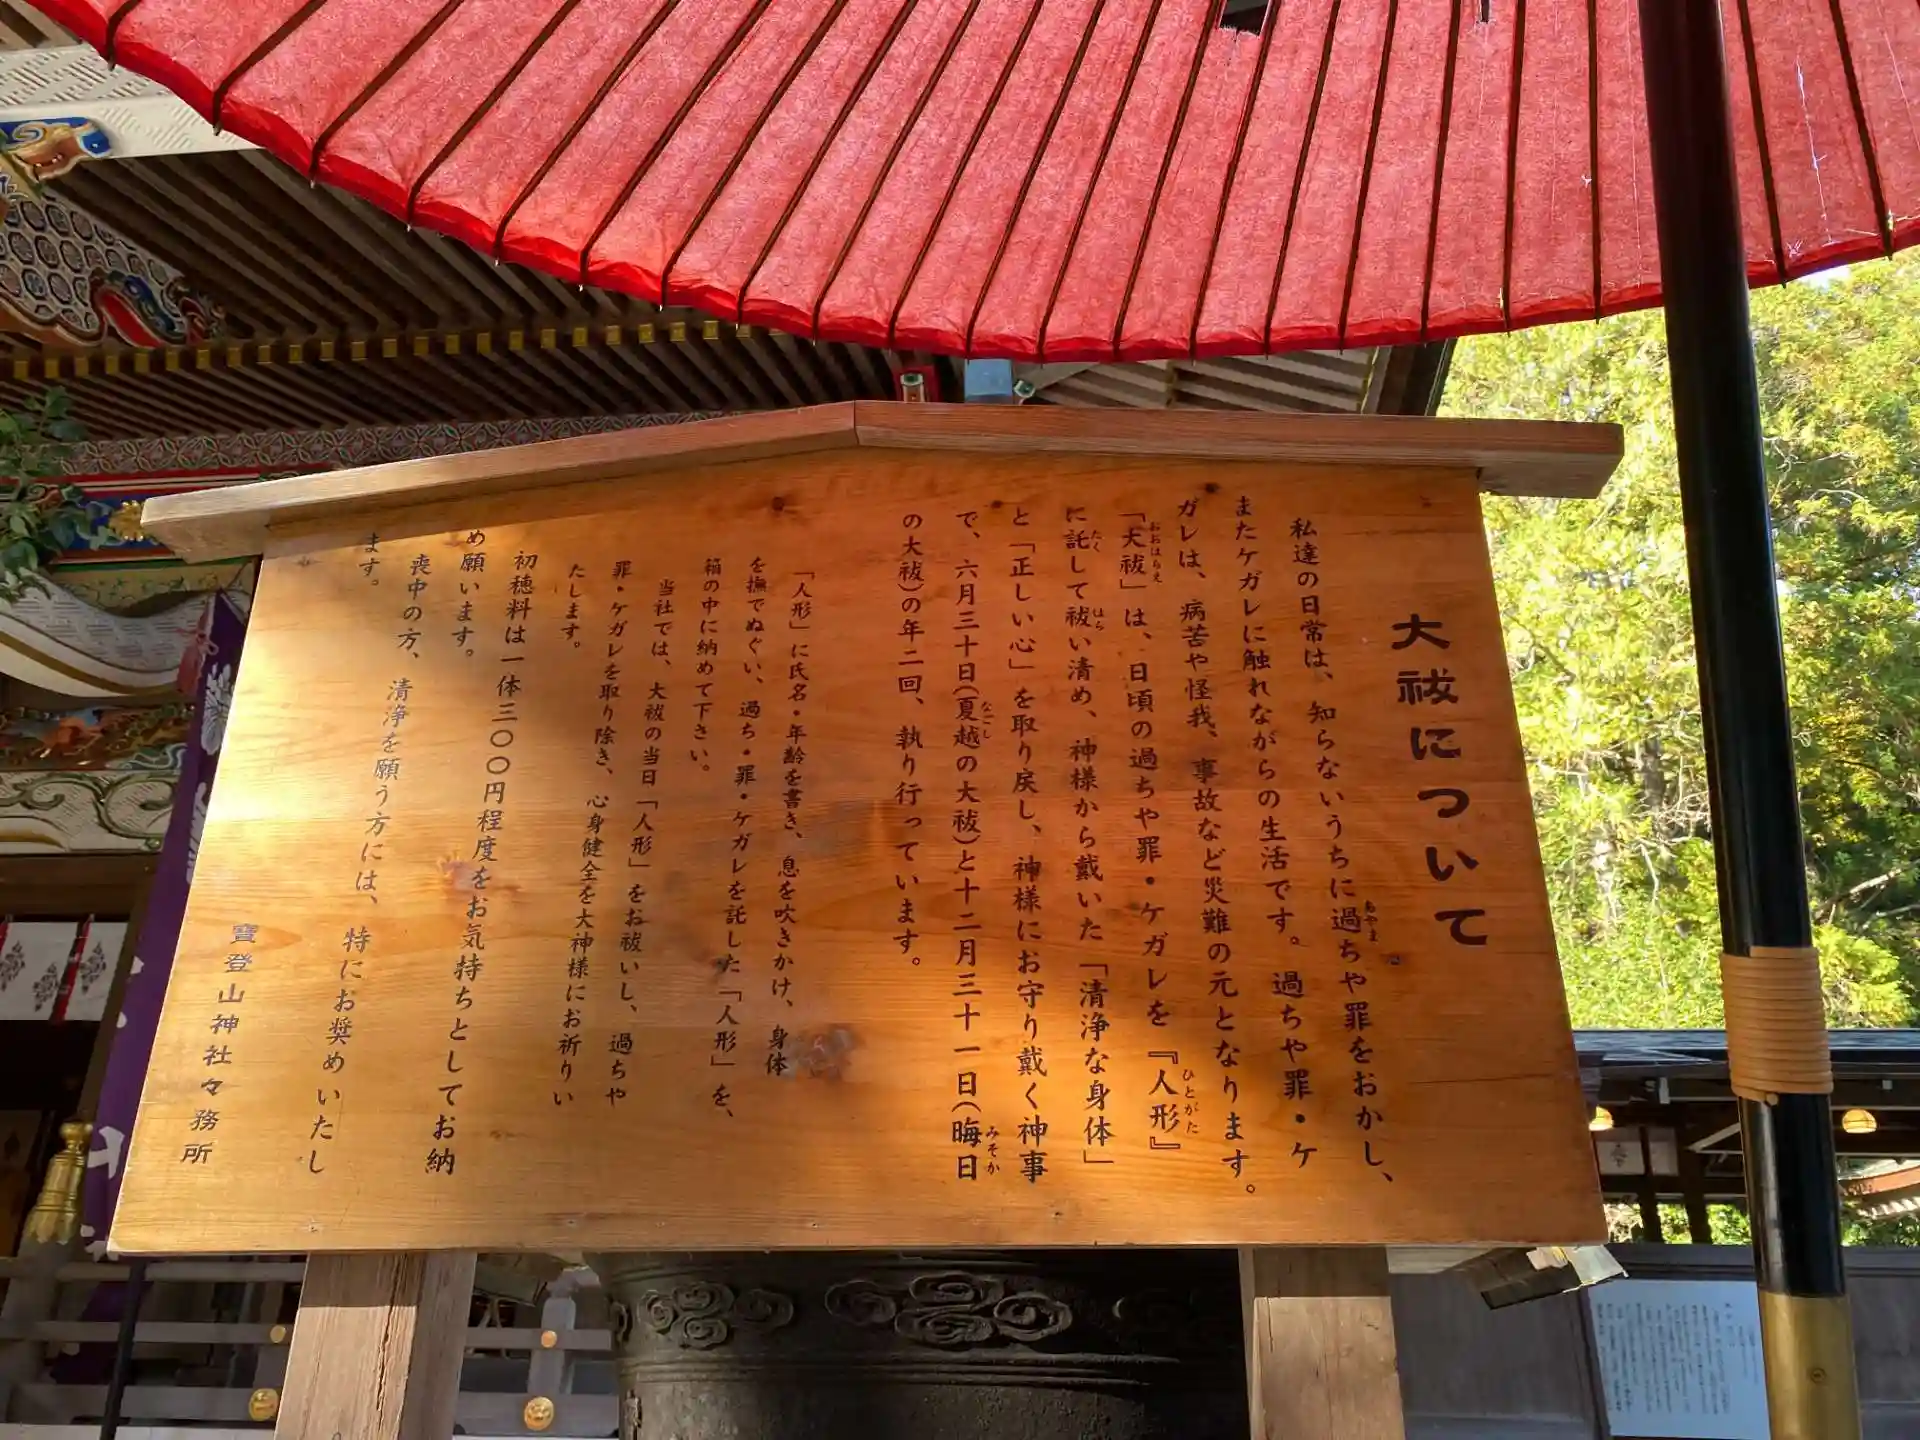 大祓について
私達の日常は、知らないうちに過ちや罪をおかし、
またケガレに触れながらの生活です。過ちや罪・ケ
ガレは、病苦や怪我、事故など災難の元となります。
「大祓」は、日頃の過ちや罪・ケガレを『人形』
に託して祓い清め、神様から戴いた「清浄な身体」
と「正しい心」を取り戻し、神様にお守り戴く神事
で、六月三十日(夏越の大祓)と十二月三十一日(晦日
の大祓)の年二回、執り行っています。
「人形」に氏名・年齢を書き、息を吹きかけ、身体
を撫でぬぐい、過ち・罪・ケガレを託した「人形」を、
箱の中に納めて下さい。
当社では、大祓の当日「人形」をお祓いし、過ちや
罪・ケガレを取り除き、心身健全を大神様にお祈りい
たします。
初穂料は一体三〇〇円程度をお気持ちとしてお納
め願います。
喪中の方、清浄を願う方には、特にお奨めいたし
ます。
寶登山神社々務所